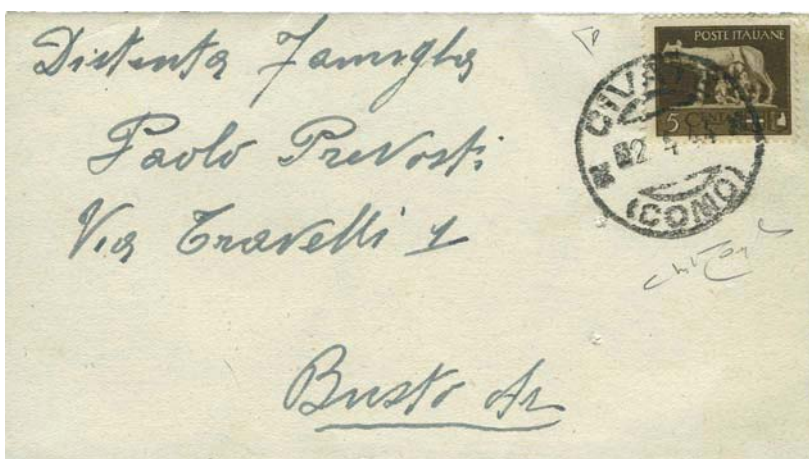 Distinta Famiglia
Paolo Prevosti
Via Travelli 1
Busto Ar
POSTE ITALIANE
5 CENTESIMI
CIVATE
2 4 44
(COMO)